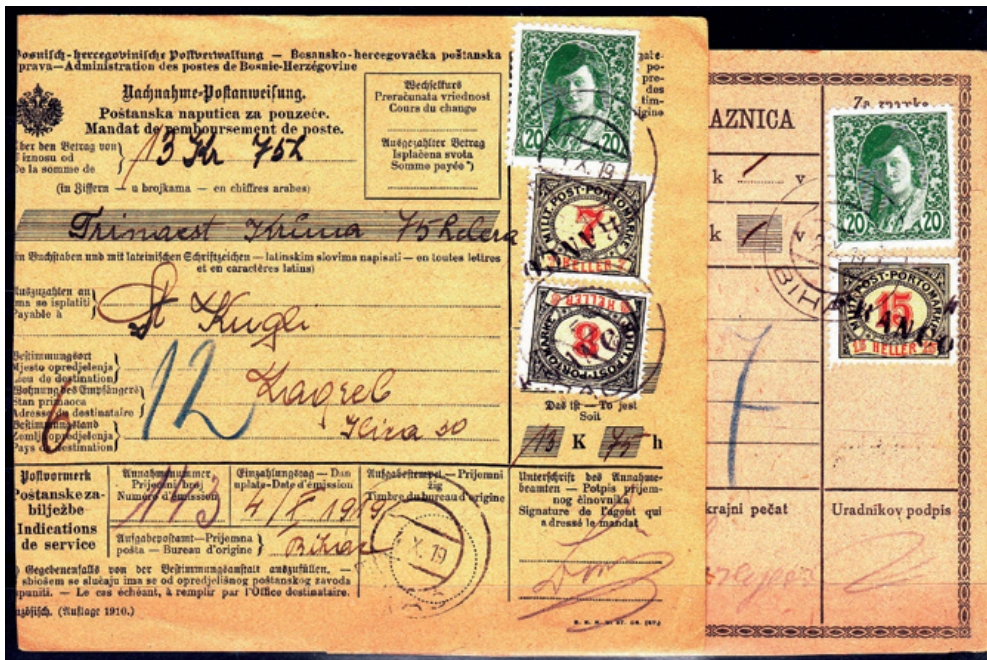 Bosnisch-hercegovinische Postverwaltung — Bosansko-hercegovačka poštanska
prava—Administration des postes de Bosnie-Herzégovine
Nachnahme-Postanweisung.
Poštanska naputica za pouzeće.
Mandat de remboursement de poste.
Wechselkurs
Preračunata vriednost
Cours du change
Ausgezahlter Betrag
Isplaćena svota
Somme payée*)
Über den Betrag von
Iznosu od
De la somme de
13 Kr 75 h
(in Ziffern — u brojkama — en chiffres arabes)
Trinaest Kruna 75 helera
(in Buchstaben und mit lateinischen Schriftzeichen — latinskim slovima napisati — en toutes lettres
et en caractères latins)
Auszuzahlen an
ima se isplatiti
Payable à
St Kugli
Bestimmungsort
Mjesto opredjelenja
Lieu de destination
Zagreb
Wohnung des Empfängers
Stan primaoca
Adresse du destinataire
Ilica 30
Bestimmungsland
Zemlja opredjelenja
Pays de destination
6
12
Das ist — To jest
Soit
13 K 75 h
Postvormerk
Poštanske za-
bilježbe
Indications
de service
Annahmenummer
Prijemni broj
Numéro d'émission
113
Einzahlungstag — Dan
uplate-Date d'émission
4/X 1919
Aufgabestempel — Prijemni
žig
Timbre du bureau d'origine
X. 19
Aufgabepostamt—Prijemna
pošta — Bureau d'origine
Bihać
Unterschrift des Annahme-
beamten — Potpis prijem-
nog činovnika
Signature de l'agent qui
a dressé le mandat
*) Gegebenenfalls von der Bestimmungsanstalt auszufüllen. —
sbiošem se slučaju ima se od opredjelišnog poštanskog zavoda
spuniti. — Le cas échéant, à remplir par l'Office destinataire.
(Auflage 1910.)
20 20
X. 19
MILIT. POST-PORTOMARKE
7
HELLER
MILIT. POST-PORTOMARKE
8
HELLER
AZNICA
Za marke
k v
k v
20 20
BIH
MILIT. POST-PORTOMARKE
15
15 HELLER 15
krajni pečat
Uradnikov podpis